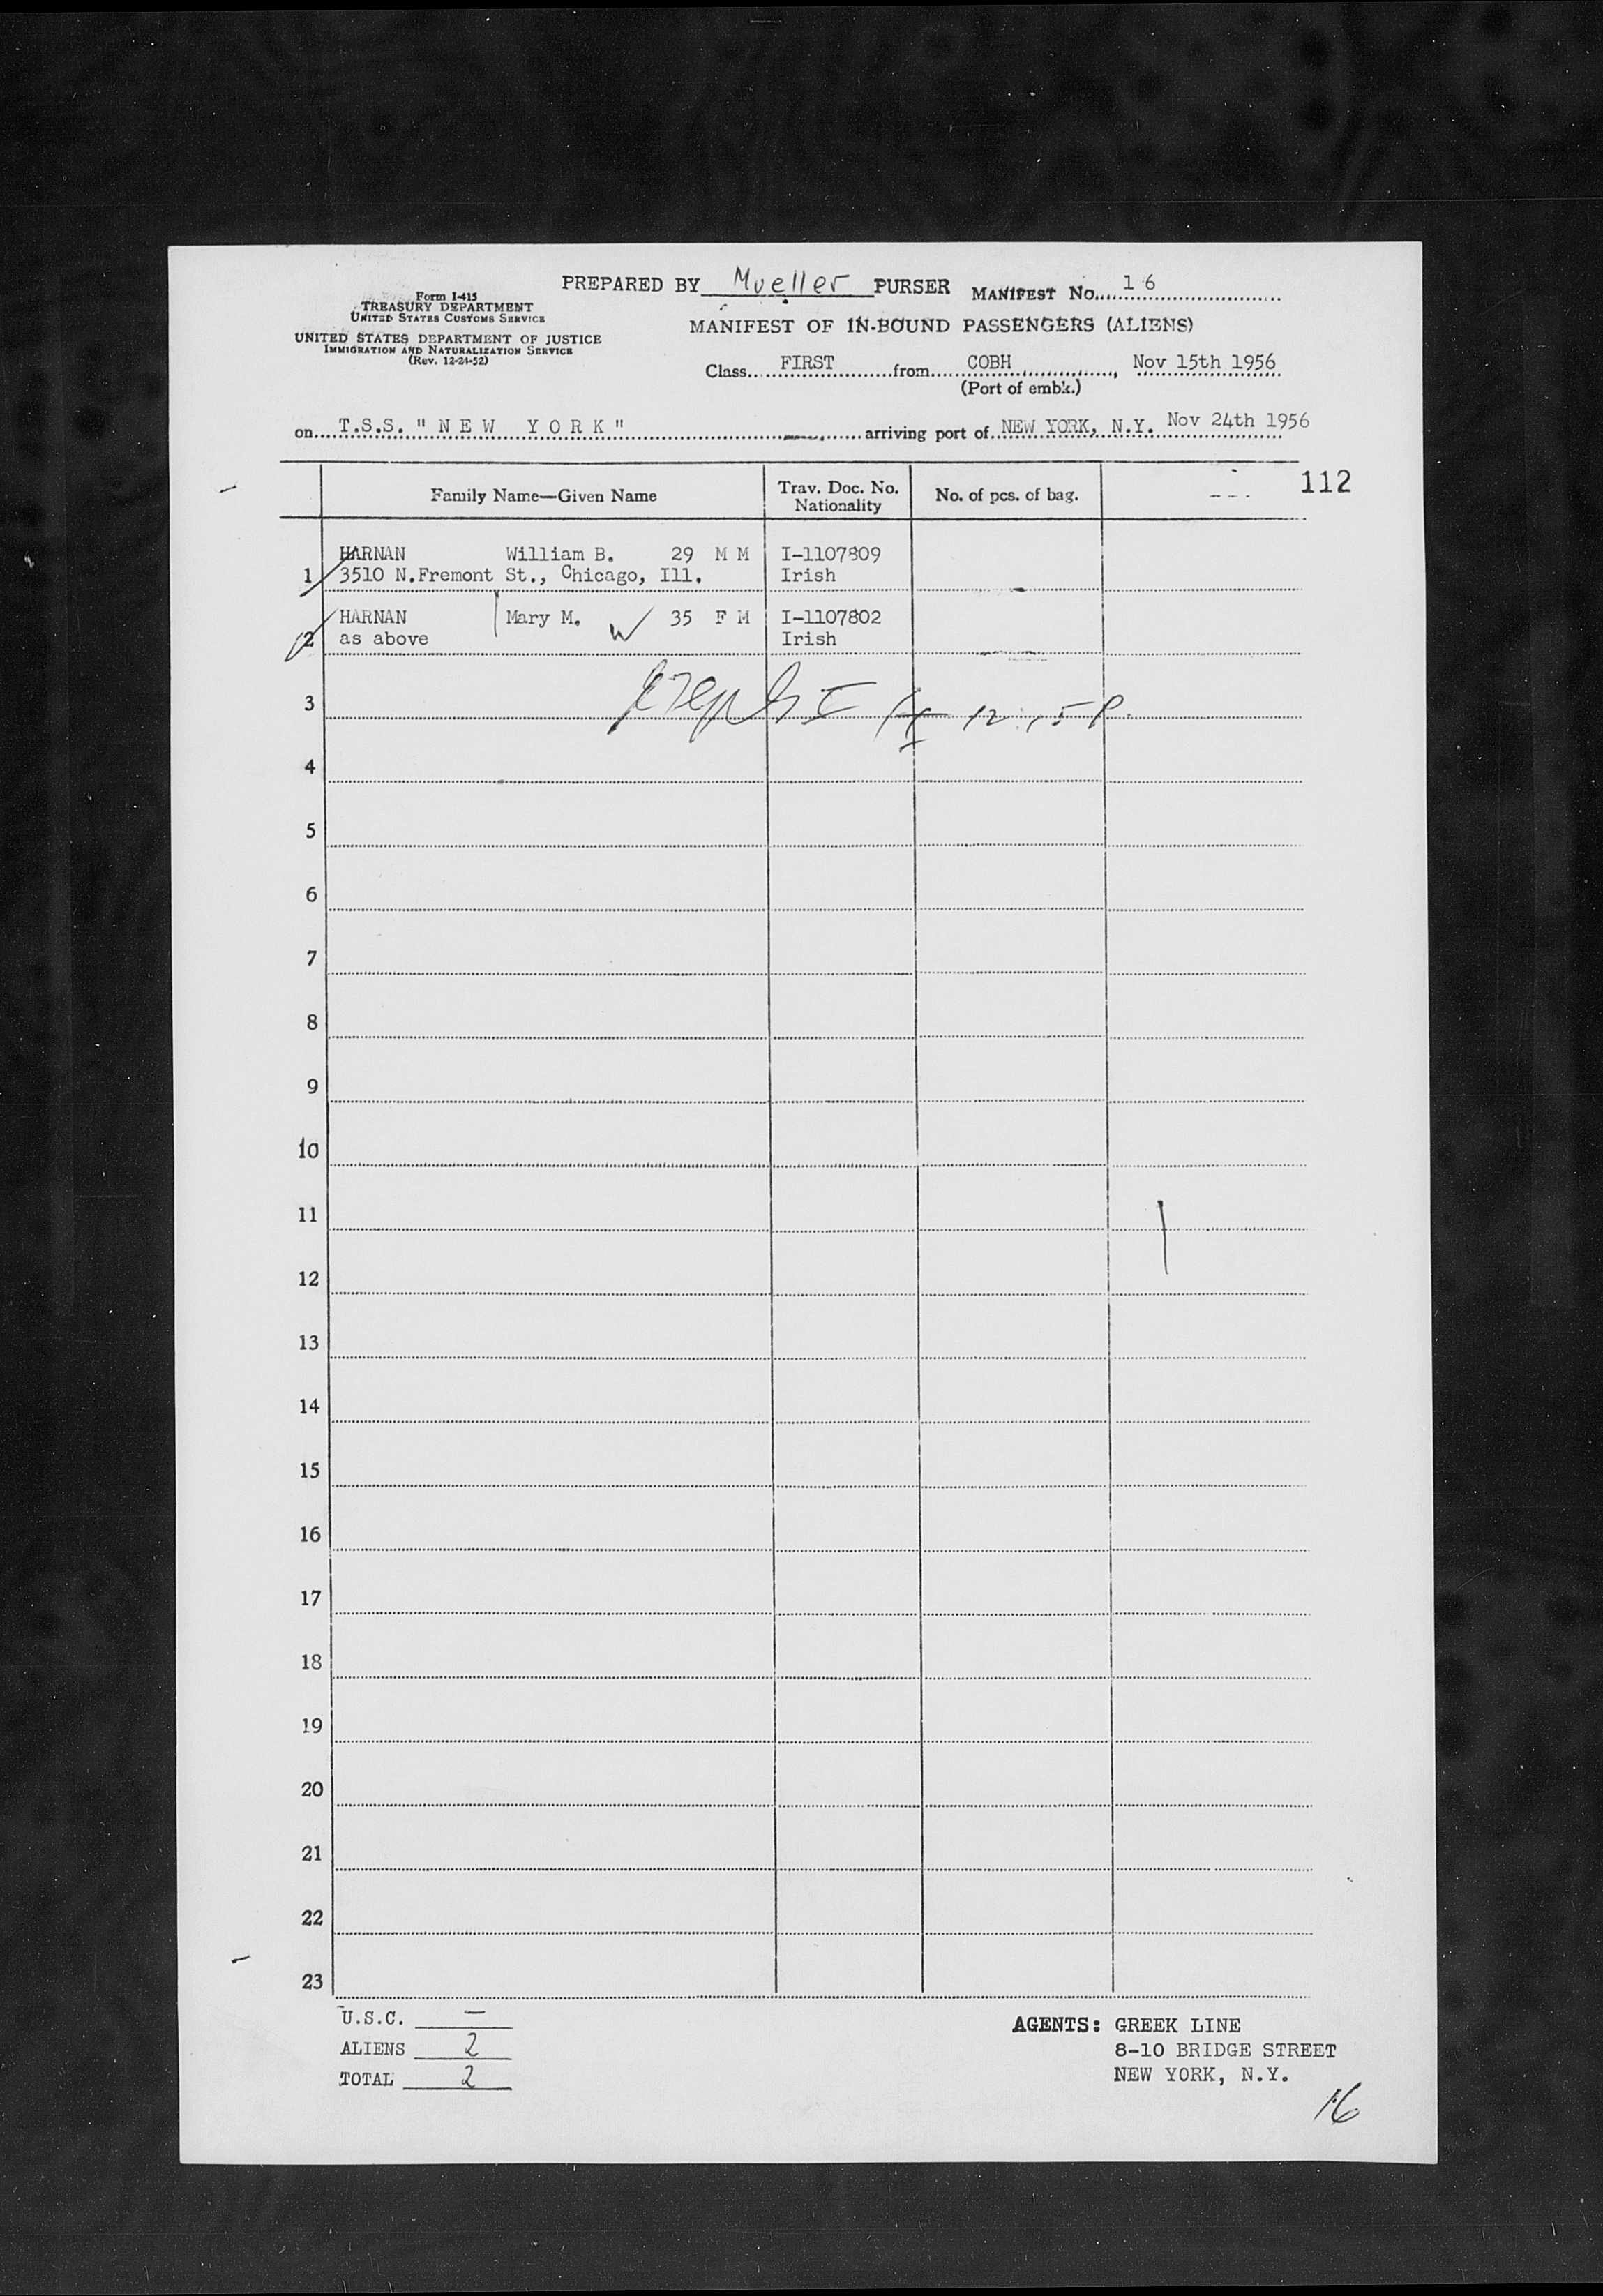 PREPARED BY Mueller PURSER MANIFEST No. 16
Form I-415
TREASURY DEPARTMENT
UNITED STATES CUSTOMS SERVICE
UNITED STATES DEPARTMENT OF JUSTICE
IMMIGRATION AND NATURALIZATION SERVICE
(Rev. 12-24-52)
MANIFEST OF IN-BOUND PASSENGERS (ALIENS)
Class FIRST from COBH, Nov 15th 1956
(Port of embk.)
on T.S.S. " N E W Y O R K " arriving port of NEW YORK, N.Y. Nov 24th 1956
112
Family Name—Given Name Trav. Doc. No. Nationality No. of pcs. of bag.
HARNAN William B. 29 M M I-1107809
1 3510 N.Fremont St., Chicago, Ill. Irish
HARNAN Mary M. W 35 F M I-1107802
2 as above Irish
3
4
5
6
7
8
9
10
11
12
13
14
15
16
17
18
19
20
21
22
23
U.S.C. —
ALIENS 2
TOTAL 2
AGENTS: GREEK LINE
8-10 BRIDGE STREET
NEW YORK, N.Y.
16